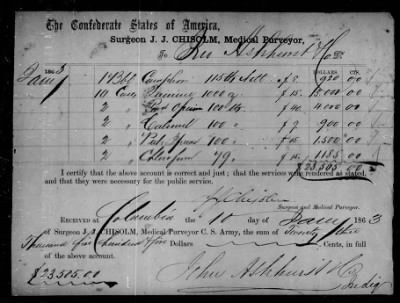 The Confederate States of America,
Surgeon J. J. CHISOLM, Medical Purveyor,
To Jno Ashhurst & Co Dr.
1863 DOLLARS CTS.
Jany 1 Bbl Camphor 115 lbs $8 920 00
10 Cases 1000 $15 15000 00
2 " Opium 100 lbs $40 4000 00
2 " Calomel 100 " $9 900 00
2 " 100 " $15 1500 00
2 " Chloroform 79 " $15 1185 00
$23505 00
I certify that the above account is correct and just; that the services were rendered as stated, and
that they were necessary for the public service.
J J Chisolm
Surgeon and Medical Purveyor.
RECEIVED AT Columbia the 10 day of Jany 1863
of Surgeon J. J. CHISOLM, Medical Purveyor C. S. Army, the sum of Twenty three
Thousand five hundred & five Dollars Cents, in full
of the above account.
$23505.00 John Ashhurst & Co